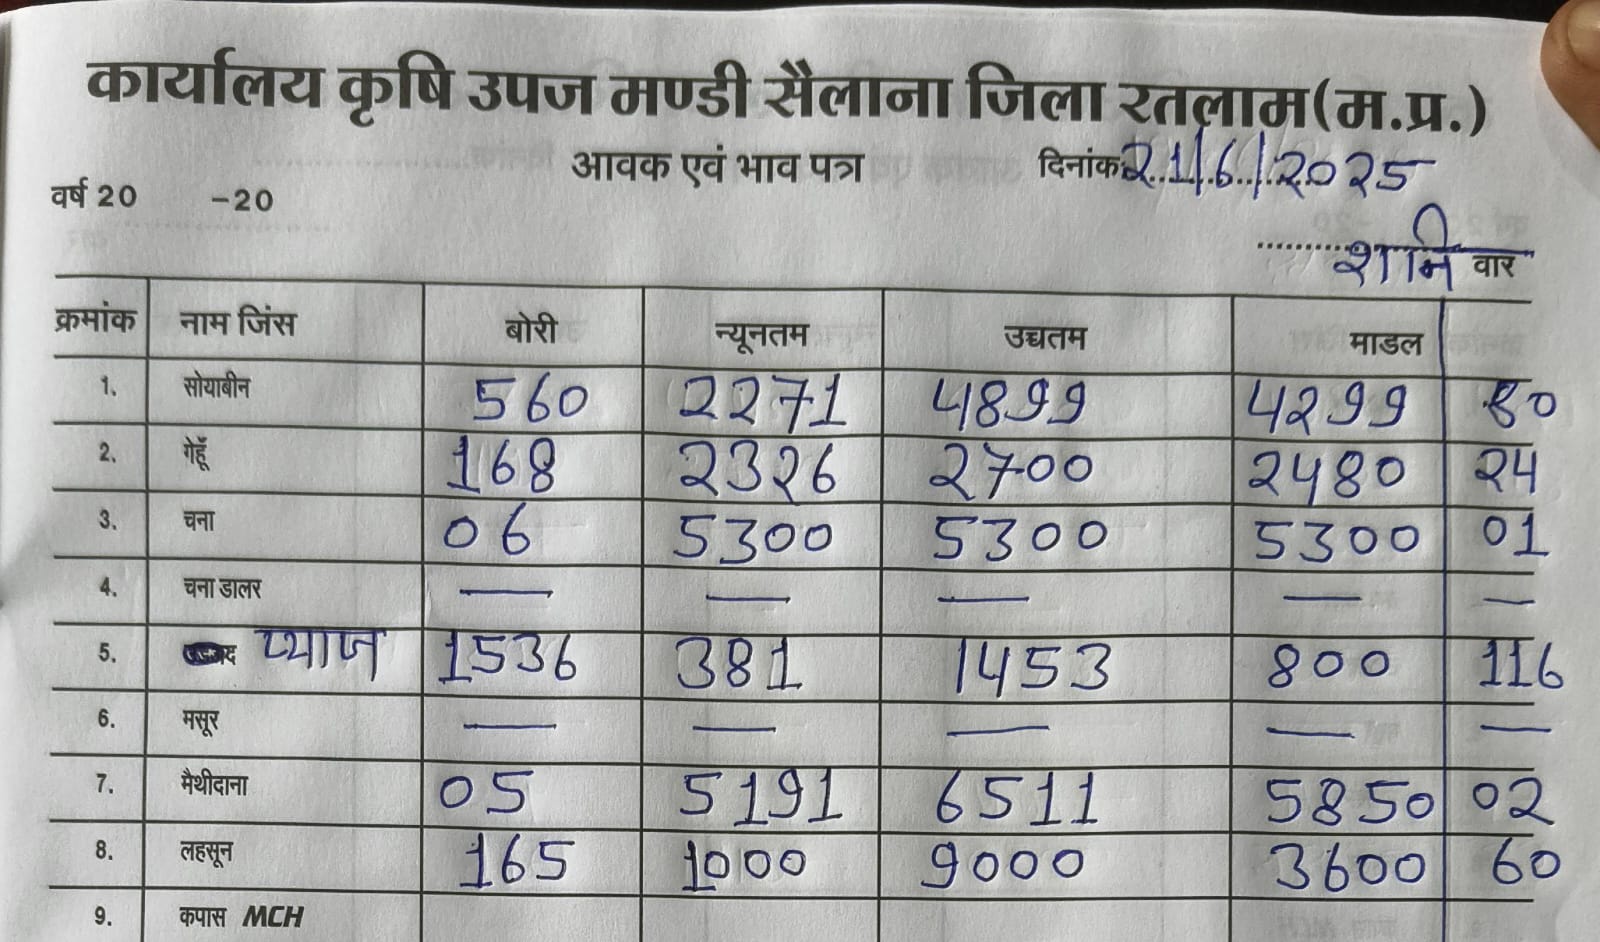 कार्यालय कृषि उपज मण्डी सैलाना जिला रतलाम(म.प्र.)
आवक एवं भाव पत्र दिनांक 21/6/2025
वर्ष 20 -20
शनि वार
क्रमांक नाम जिंस बोरी न्यूनतम उच्चतम माडल
1. सोयाबीन 560 2271 4899 4299 80
2. गेहूँ 168 2326 2700 2480 24
3. चना 06 5300 5300 5300 01
4. चना डालर — — — — —
5. प्याज 1536 381 1453 800 116
6. मसूर — — — — —
7. मैथीदाना 05 5191 6511 5850 02
8. लहसून 165 1000 9000 3600 60
9. कपास MCH